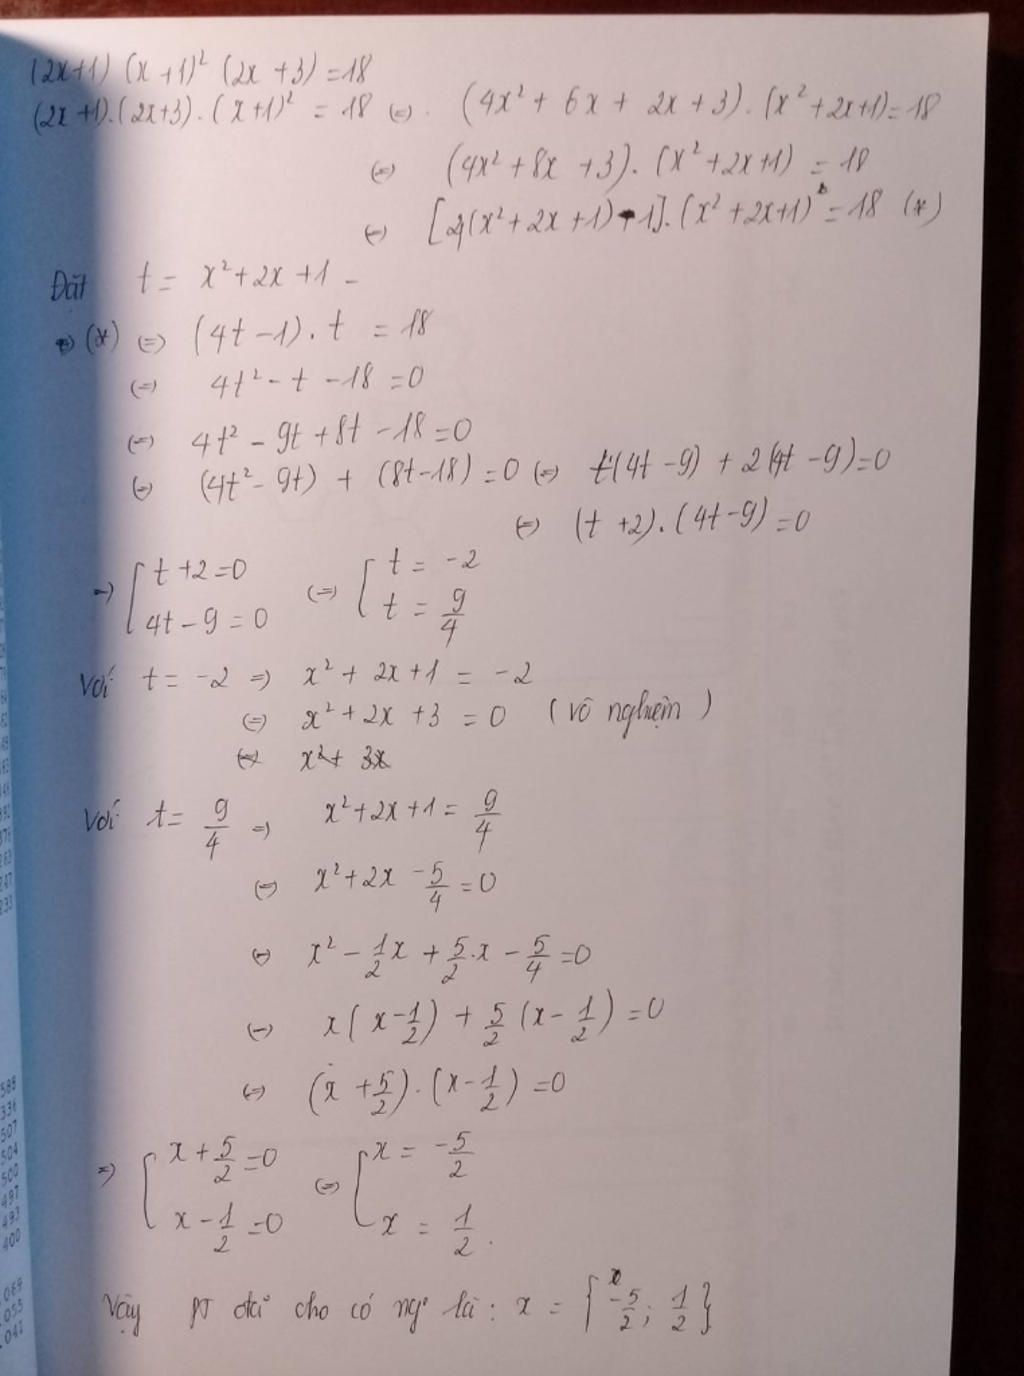 (2x+1) (x+1)² (2x+3) = 18
(2x+1).(2x+3).(x+1)² = 18 (=) (4x² + 6x + 2x + 3).(x²+2x+1) = 18
(=) (4x² + 8x + 3).(x²+2x+1) = 18
(=) [4(x²+2x+1) - 1].(x²+2x+1) = 18 (*)
Đặt t = x²+2x+1
(*) (=) (4t-1).t = 18
(=) 4t² - t - 18 = 0
(=) 4t² - 9t + 8t - 18 = 0
(=) (4t² - 9t) + (8t-18) = 0 (=) t(4t-9) + 2(4t-9) = 0
(=) (t+2).(4t-9) = 0
=) [ t+2=0 (=) [ t = -2
4t-9=0 t = 9/4
Với t = -2 =) x² + 2x + 1 = -2
(=) x² + 2x + 3 = 0 (vô nghiệm)
(=) x² + 3x
Với t = 9/4 =) x²+2x+1 = 9/4
(=) x²+2x - 5/4 = 0
(=) x² - 1/2x + 5/2.x - 5/4 = 0
(=) x(x-1/2) + 5/2(x-1/2) = 0
(=) (x+5/2).(x-1/2) = 0
=) [ x+5/2=0 (=) [ x = -5/2
x-1/2=0 x = 1/2.
Vậy PT đã cho có ng° là: x = { -5/2; 1/2 }
588
336
507
504
500
497
493
400
069
055
041